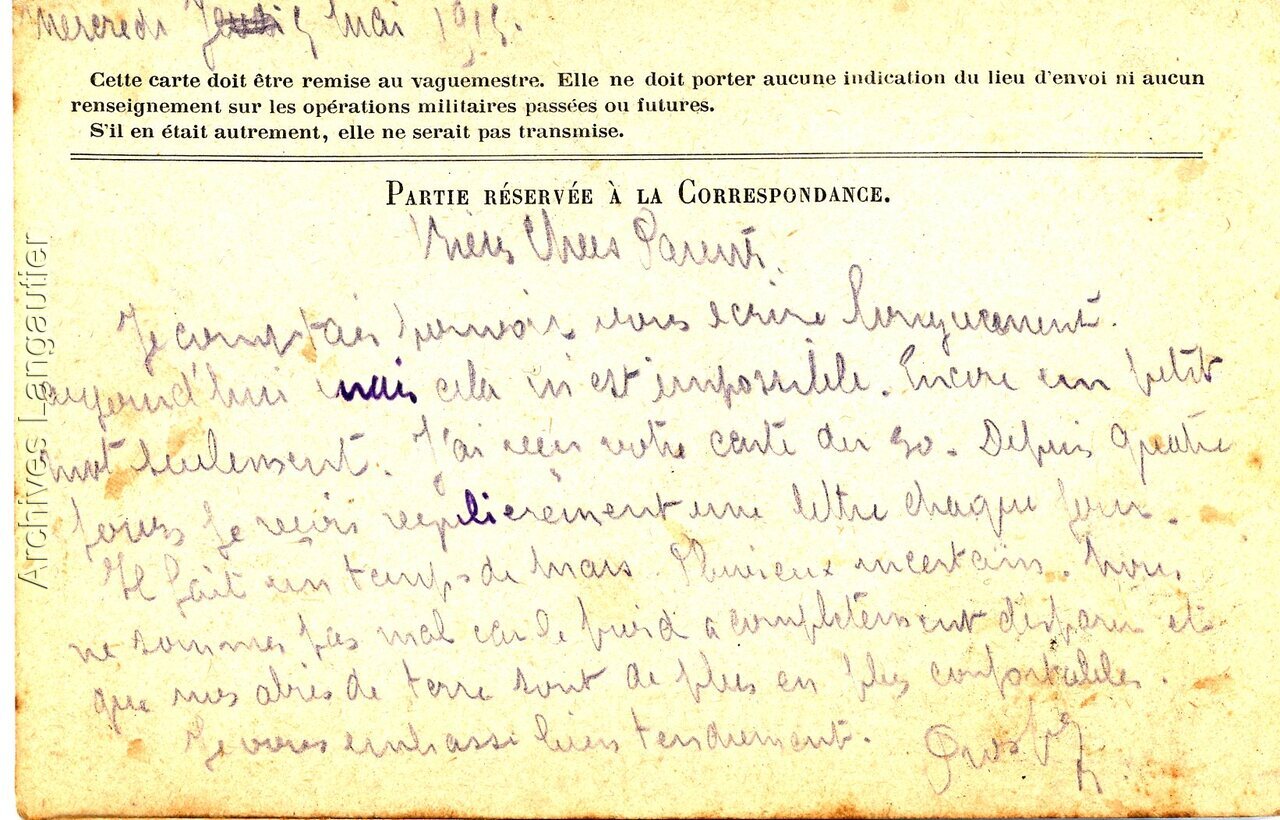 Mercredi 5 Mai 1915.
Cette carte doit être remise au vaguemestre. Elle ne doit porter aucune indication du lieu d'envoi ni aucun
renseignement sur les opérations militaires passées ou futures.
S'il en était autrement, elle ne serait pas transmise.
PARTIE RÉSERVÉE À LA CORRESPONDANCE.
Chers Parents.
Je comptais pouvoir vous écrire longuement.
aujourd'hui mais cela m'est impossible. Encore un petit
mot seulement. J'ai reçu votre carte du 30. Depuis quatre
jours je reçois regulierement une lettre chaque jour.
Il fait un temps de Mars. Pluvieux incertain. Nous
ne sommes pas mal car le froid a completement disparu et
que nos abris de terre sont de plus en plus confortables.
Je vous embrasse bien tendrement.
Archives Langautier